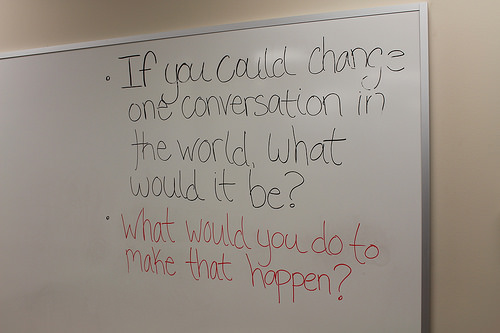 • If you could change
one conversation in
the world, what
would it be?
• What would you do to
make that happen?